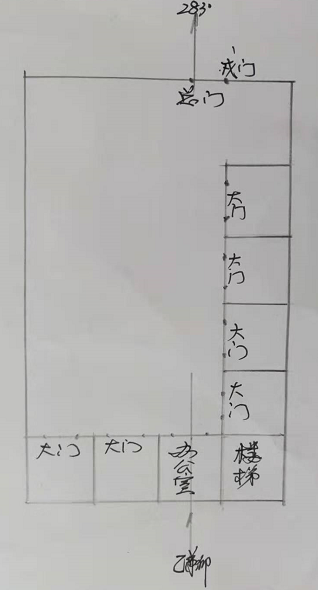 283°
戎门
总门
大门
大门
大门
大门
大门
大门
办公室
楼梯